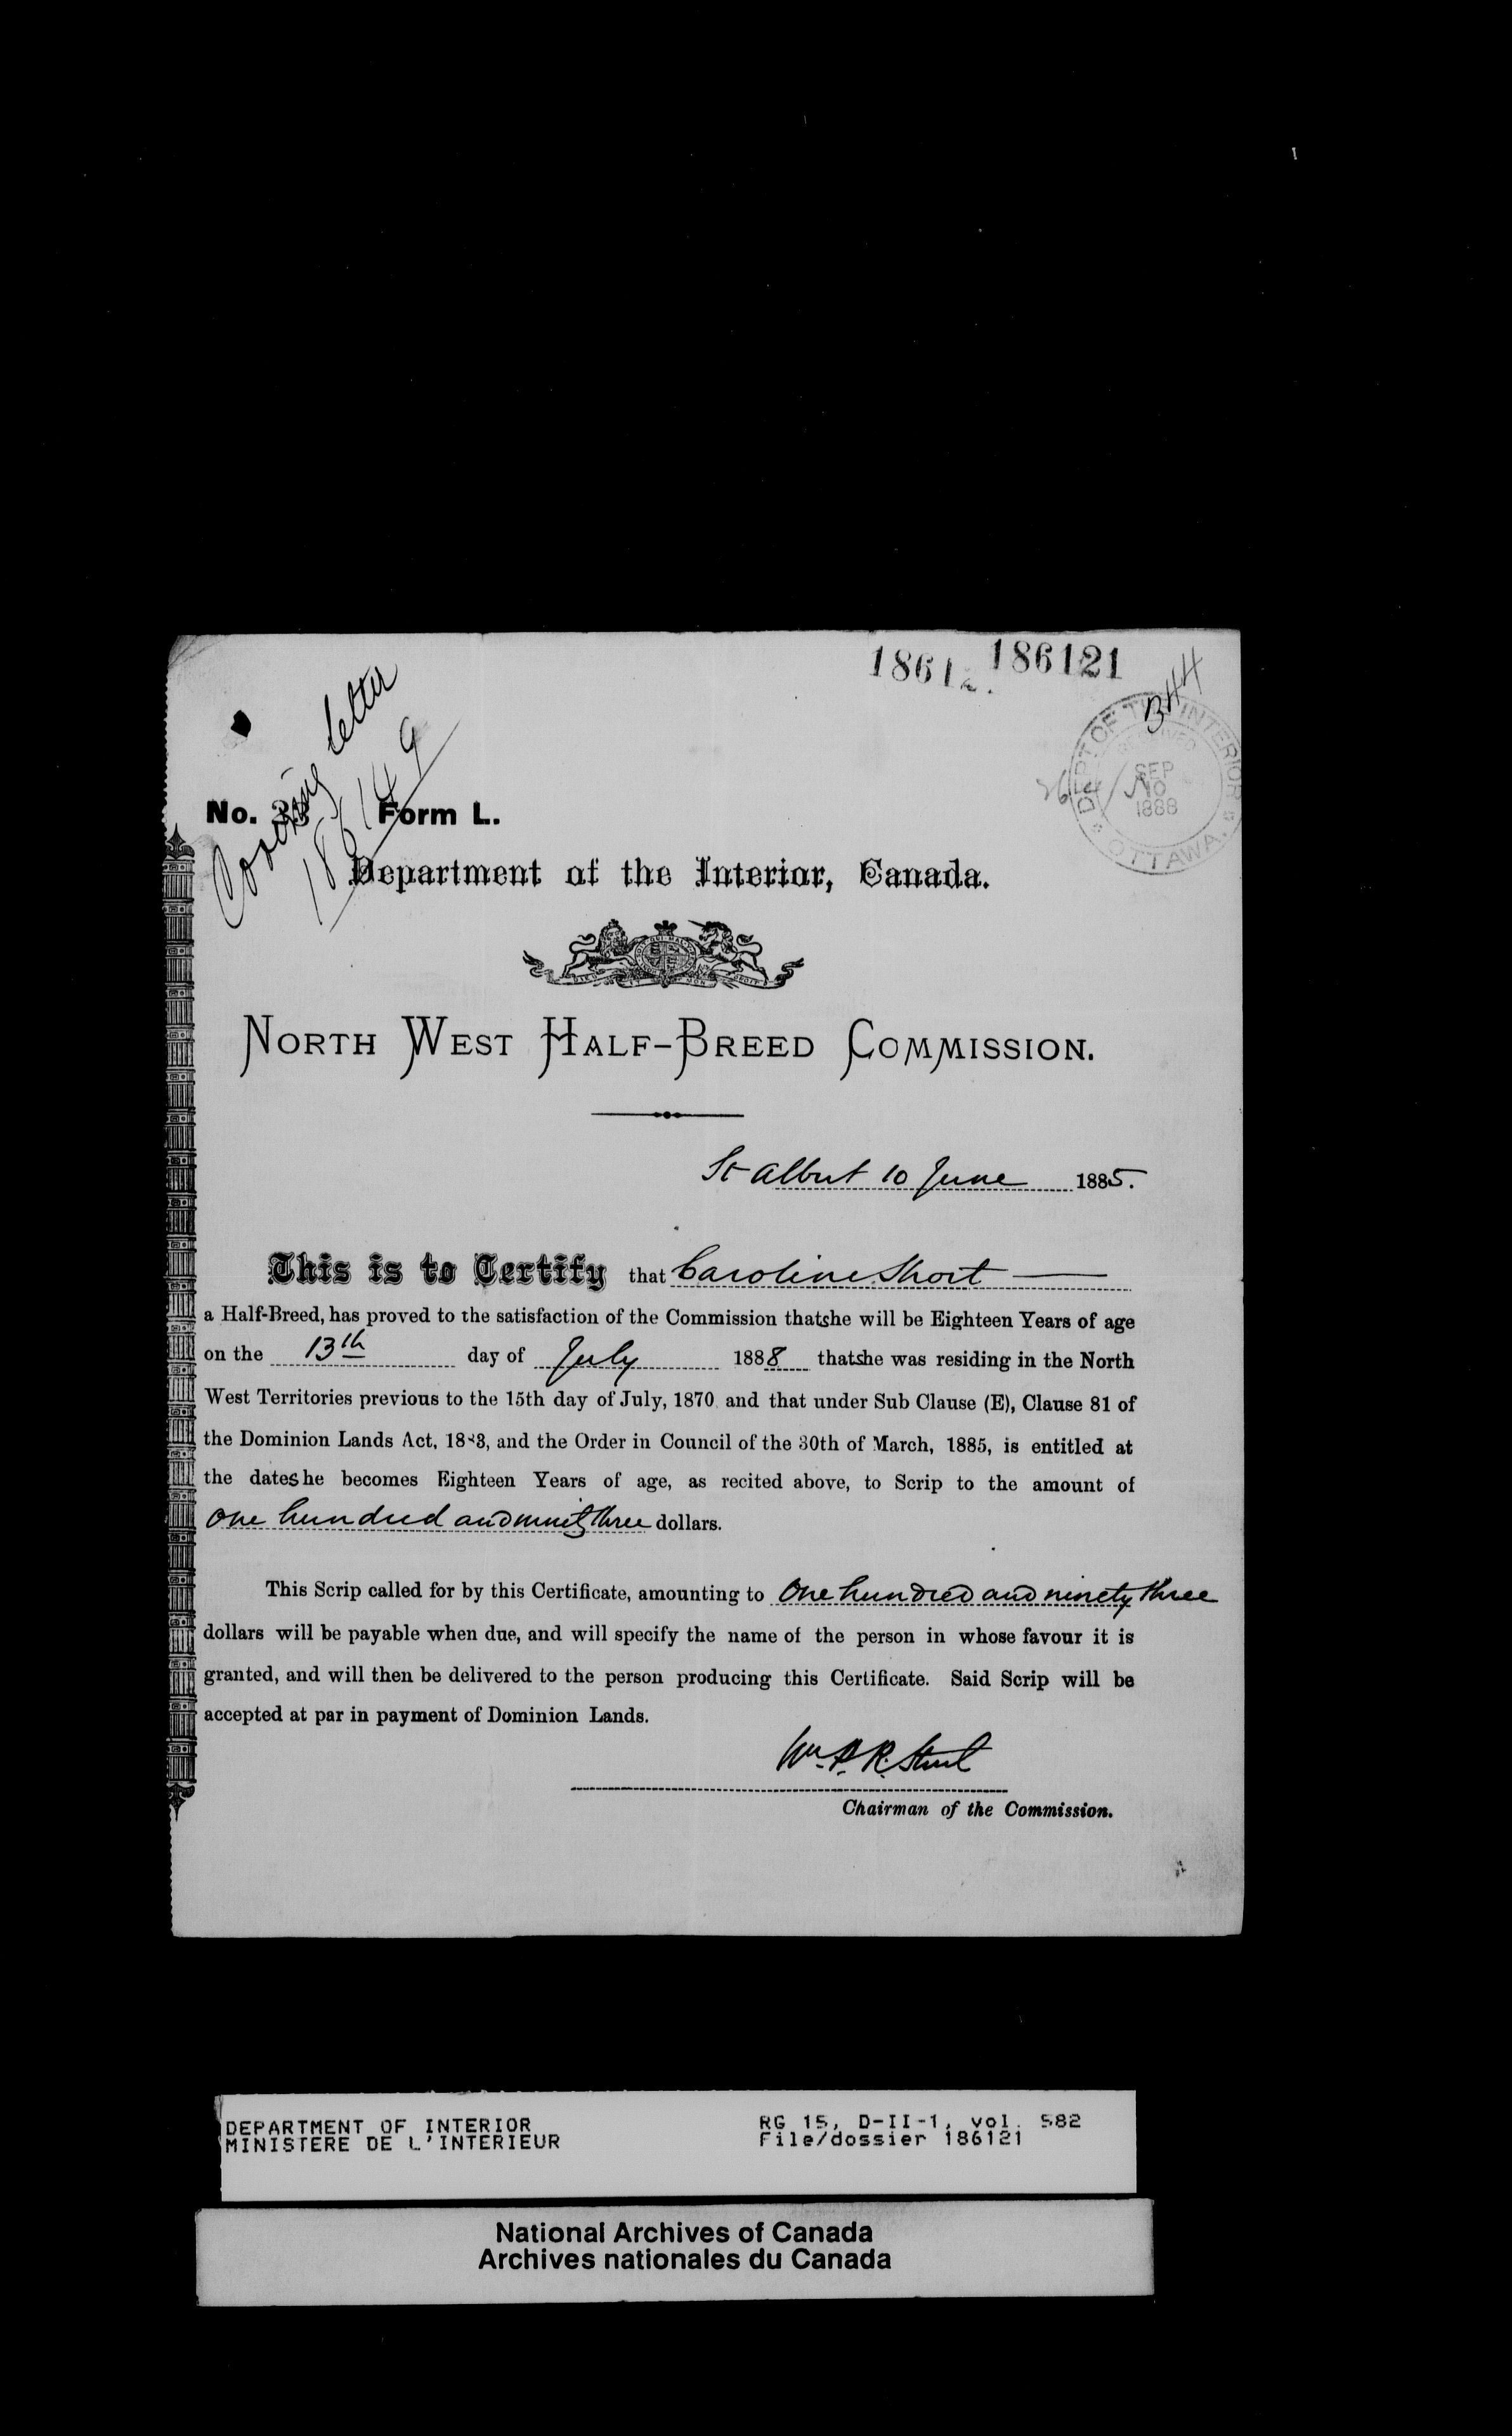 186121
B44
Covering letter
186149
No. Form L.
DEPT OF THE INTERIOR
SEP
10
1888
OTTAWA.
Department of the Interior, Canada.
NORTH WEST HALF-BREED COMMISSION.
St Albert 10 June 1885.
This is to Certify that Caroline Short
a Half-Breed, has proved to the satisfaction of the Commission that she will be Eighteen Years of age
on the 13th day of July 1888 that she was residing in the North
West Territories previous to the 15th day of July, 1870 and that under Sub Clause (E), Clause 81 of
the Dominion Lands Act, 1883, and the Order in Council of the 30th of March, 1885, is entitled at
the date she becomes Eighteen Years of age, as recited above, to Scrip to the amount of
One hundred and ninety three dollars.
This Scrip called for by this Certificate, amounting to One hundred and ninety three
dollars will be payable when due, and will specify the name of the person in whose favour it is
granted, and will then be delivered to the person producing this Certificate. Said Scrip will be
accepted at par in payment of Dominion Lands.
Wm. P. R. Street
Chairman of the Commission.
DEPARTMENT OF INTERIOR RG 15, D-II-1, vol. 582
MINISTERE DE L'INTERIEUR File/dossier 186121
National Archives of Canada
Archives nationales du Canada